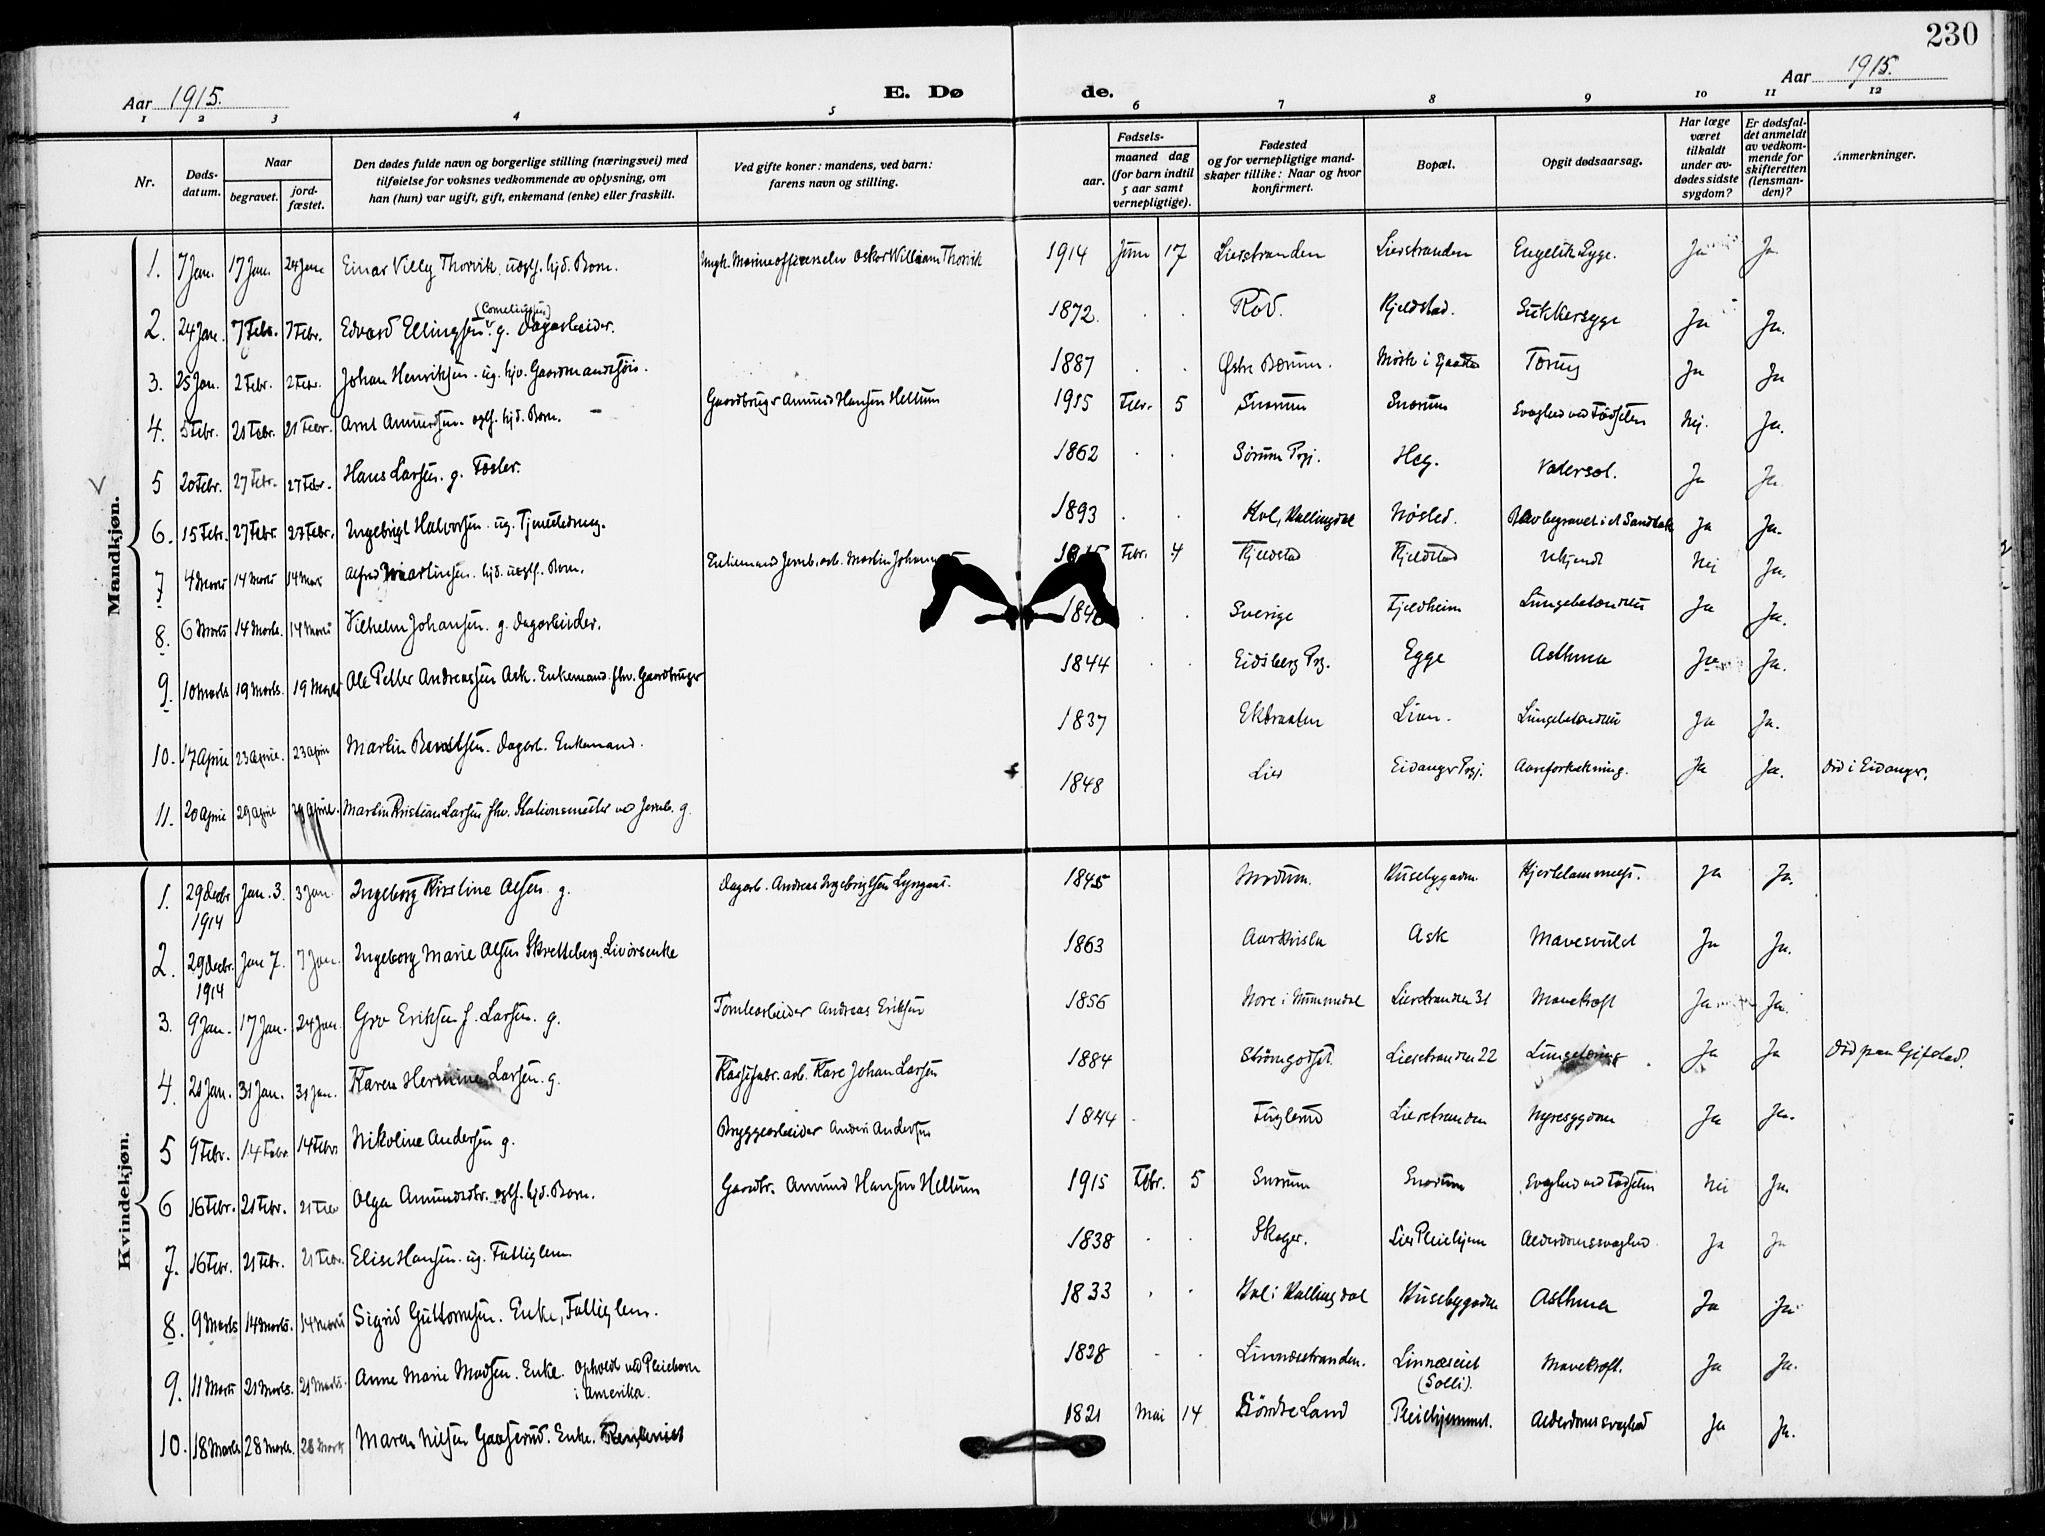 230
Aar 1915.
E. Dø de.
Aar 1915.
1 2 3 4 5 6 7 8 9 10 11 12
Nr.
Døds-
datum.
Naar
begravet.
jord-
fæstet.
Den dødes fulde navn og borgerlige stilling (næringsvei) med
tilføielse for voksnes vedkommende av oplysning, om
han (hun) var ugift, gift, enkemand (enke) eller fraskilt.
Ved gifte koner: mandens, ved barn:
farens navn og stilling.
Fødsels-
aar.
maaned dag
(for barn indtil
5 aar samt
vernepligtige).
Fødested
og for vernepligtige mand-
skaper tillike: Naar og hvor
konfirmert.
Bopæl.
Opgit dødsaarsag.
Har læge
været
tilkaldt
under av-
dødes sidste
sygdom?
Er dødsfal-
det anmeldt
av vedkom-
mende for
skifteretten
(lensman-
den)?
Anmerkninger.
Mandkjøn.
1. 7 Jan. 17 Jan. 24 Jan Einar Villy Thorvik. uegtf. hjd. Barn. Ungk. Marineofficer Oskar William Thorvik 1914 Juni 17 Lierstranden Lierstranden Engelsk Syge. Ja Ja.
(Corneliussen)
2. 24 Jan. 7 Febr. 7 Febr. Edvard Ellingsen. g. Dagarbeider. 1872 . . Rød. Kjeldstad. Sukkersyge Ja Ja.
3. 25 Jan. 2 Febr. 2 Febr. Johan Henriksen. ug. hjv. Gaardmandssøn. 1887 . . Østre Bærum. Mørk i Tæring Ja Ja
4. 5 Febr. 21 Febr. 21 Febr. Arnt Amundsen. egtf. hjd. Barn. Gaardbruger Amund Hansen Heltum 1915 Febr. 5 Snarum Snarum Svaghed ved Fødselen Nei. Ja.
5 20 Febr. 27 Febr. 27 Febr. Hans Larsen. g. Fæster. 1862 . . Sørum Prgj. Heg. Vatersot. Ja Ja.
6. 15 Febr. 27 Febr 27 Febr. Ingebrigt Halvorsen. ug. Tjenestedreng. 1893 . . Hol, Hallingdal Nøsted. Blev begravet i et Sandtak Ja Ja.
7 4 Marts 14 Marts 14 Mar Alfred Martinsen. hjd. uegtf. Barn. Enkemand Jernb. arb. Martin 1915 Febr. 4 Kjeldstad Kjeldstad Ukjendt Nei Ja.
8. 6 Marts 14 Marts. 14 Marts Vilhelm Johansen. g. Dagarbeider. . . Sverige Fjeldheim Lungebetændelse Ja Ja.
9. 10 Marts 19 Marts. 19 Marts Ole Petter Andreassen Ask. Enkemand. fhv. Gaardbruger 1844 . . Eidsberg Prg. Egge Asthma Ja Ja.
10. 17 April 23 April. 23 April Martin Berntsen. Dagarb. Enkemand. 1837 Ekbraaten Lian. Lungebetændelse Ja Ja.
11. 20 April 29 April 29 April. Martin Kristian Larsen fhv. Stationsmester ved Jernb. g. 1848 Lier Eidanger Prgj. Aareforkalkning. Ja Ja. Død i Eidanger.
Kvindekjøn.
1. 29 Decbr 1914 Jan. 3. 3 Jan. Ingeborg Kirstine Olsen g. Dagarb. Andreas Ingebrigtsen Lyngaas. 1845 Modum. Husebygaden. Hjertelammelse. Ja Ja.
2. 29 Decbr. 1914 Jan 7. 7 Jan. Ingeborg Marie Olsen Skretteberg. Livørsenke 1863 Aurkisla Ask Mavesvulst Ja Ja.
3. 9 Jan. 17 Jan. 24 Jan. Gro Eriksen f. Larsen. g. Tomtearbeider Andreas Eriksen 1856 Nore i Nummedal Lierstranden 31 Mavekræft Ja Ja.
4. 21 Jan. 31 Jan. 31 Jan. Karen Hermine Larsen. g. Kassefabr. arb. Kare Johan Larsen 1884 Strømgodset. Lierstranden 22 Lungetæring Ja Ja Død paa Gifstad.
5 9 Febr. 14 Febr. 14 Febr Nikoline Andersen g. Bryggearbeider Anders Andersen 1844 . Fuglerud Lierstranden Nyresygdom Ja Ja.
6 16 Febr. 21 Febr. 21 Febr Olga Amundsdtr. egtf. hjd. Barn. Gaardbr. Amund Hansen Heltum 1915 Febr. 5 Snarum Snarum Svaghed ved Fødselen Nei Ja.
7. 16 Febr. 21 Febr. 21 Febr. Elise Hansen. ug. Fattiglem 1838 . . Skoger. Lier Pleiehjem Alderdomssvaghed Ja Ja
8. 9 Marts 14 Marts. 14 Marts Sigrid Guttormsen. Enke, Fattiglem. 1833 . . Hol i Hallingdal Husebygaden Asthma Ja Ja
9. 11 Marts 21 Marts. 21 Marts. Anne Marie Madsen. Enke. Ophold ved Pleiebarn i Amerika. 1828 . . Linnæstranden. Linnæseiet (Solli). Mavekræft. Ja Ja.
10. 18 Marts 28 Marts. 28 Marts Maren Nilsen Gaaserud. Enke. Rentenist 1821 Mai 14 Søndre Land Pleiehjemmet. Alderdomssvaghed Ja Ja.